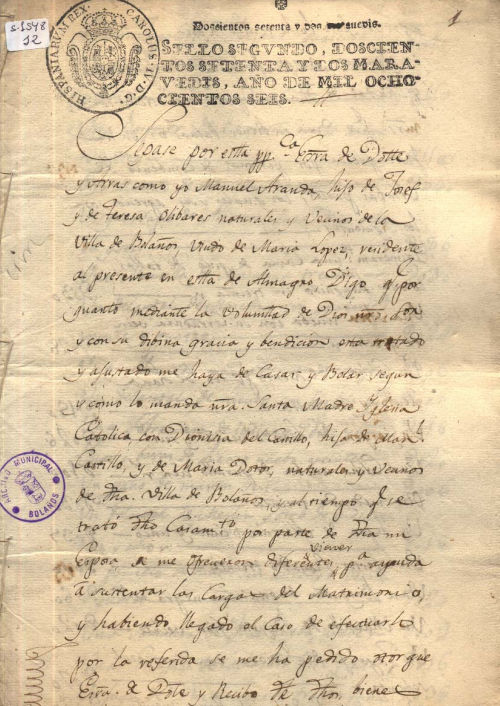 S-1548
12
1
HISPANIARUM REX. CAROLUS IV. D. G.
Doscientos setenta y dos maravedis.
SELLO SEGUNDO, DOSCIEN-
TOS SETENTA Y DOS MARA-
VEDIS, AÑO DE MIL OCHO-
CIENTOS SEIS.
Sepase por esta pp.ca Esra de Dotte
y Arras como yo Manuel Aranda, hijo de Josef
y de Teresa Olibares naturales y Vecinos de la
Villa de Bolaños Viudo de Maria Lopez, residente
al presente en esta de Almagro, Digo q.e por
quanto mediante la voluntad de Dios nro. Sor
y con su dibina gracia y bendicion esta tratado
y ajustado me haya de Casar y Belar segun
y como lo manda nra. Santa Madre Yglesia
Catolica con Dionisia del Castillo, hija de Man.l
Castillo, y de Maria naturales y Vecinos
de dha. Villa de Bolaños, y al tiempo q.e se
trató dho Casam.to por parte de dha mi
Esposa se me ofrecieron diferentes vienes p.a ayuda
á sustentar las Cargas del Matrimonio,
y habiendo llegado el Caso de efectuarle
por la referida se me ha pedido otorgue
Esra. de Dote y Recibo de dhos, bienes
ARCHIVO MUNICIPAL
BOLAÑOS